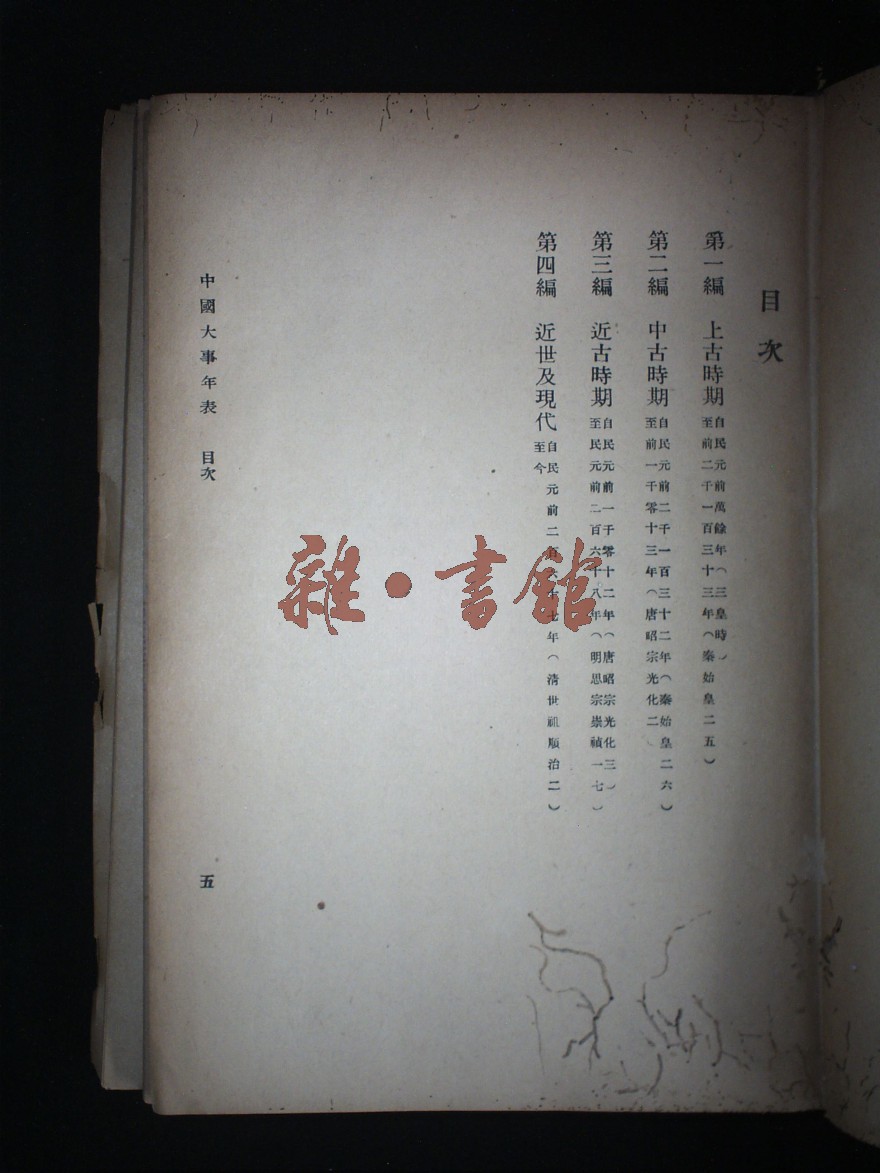 目次
第一編 上古時期 自民元前萬餘年(三皇時)
至前二千一百三十三年(秦始皇二五)
第二編 中古時期 自民元前二千一百三十二年(秦始皇二六)
至前一千零十三年(唐昭宗光化二)
第三編 近古時期 自民元前一千零十二年(唐昭宗光化三)
至民元前二百六十八年(明思宗崇禎一七)
第四編 近世及現代 自民元前二百六十七年(清世祖順治二)
至今
中國大事年表 目次
五
雜·書館